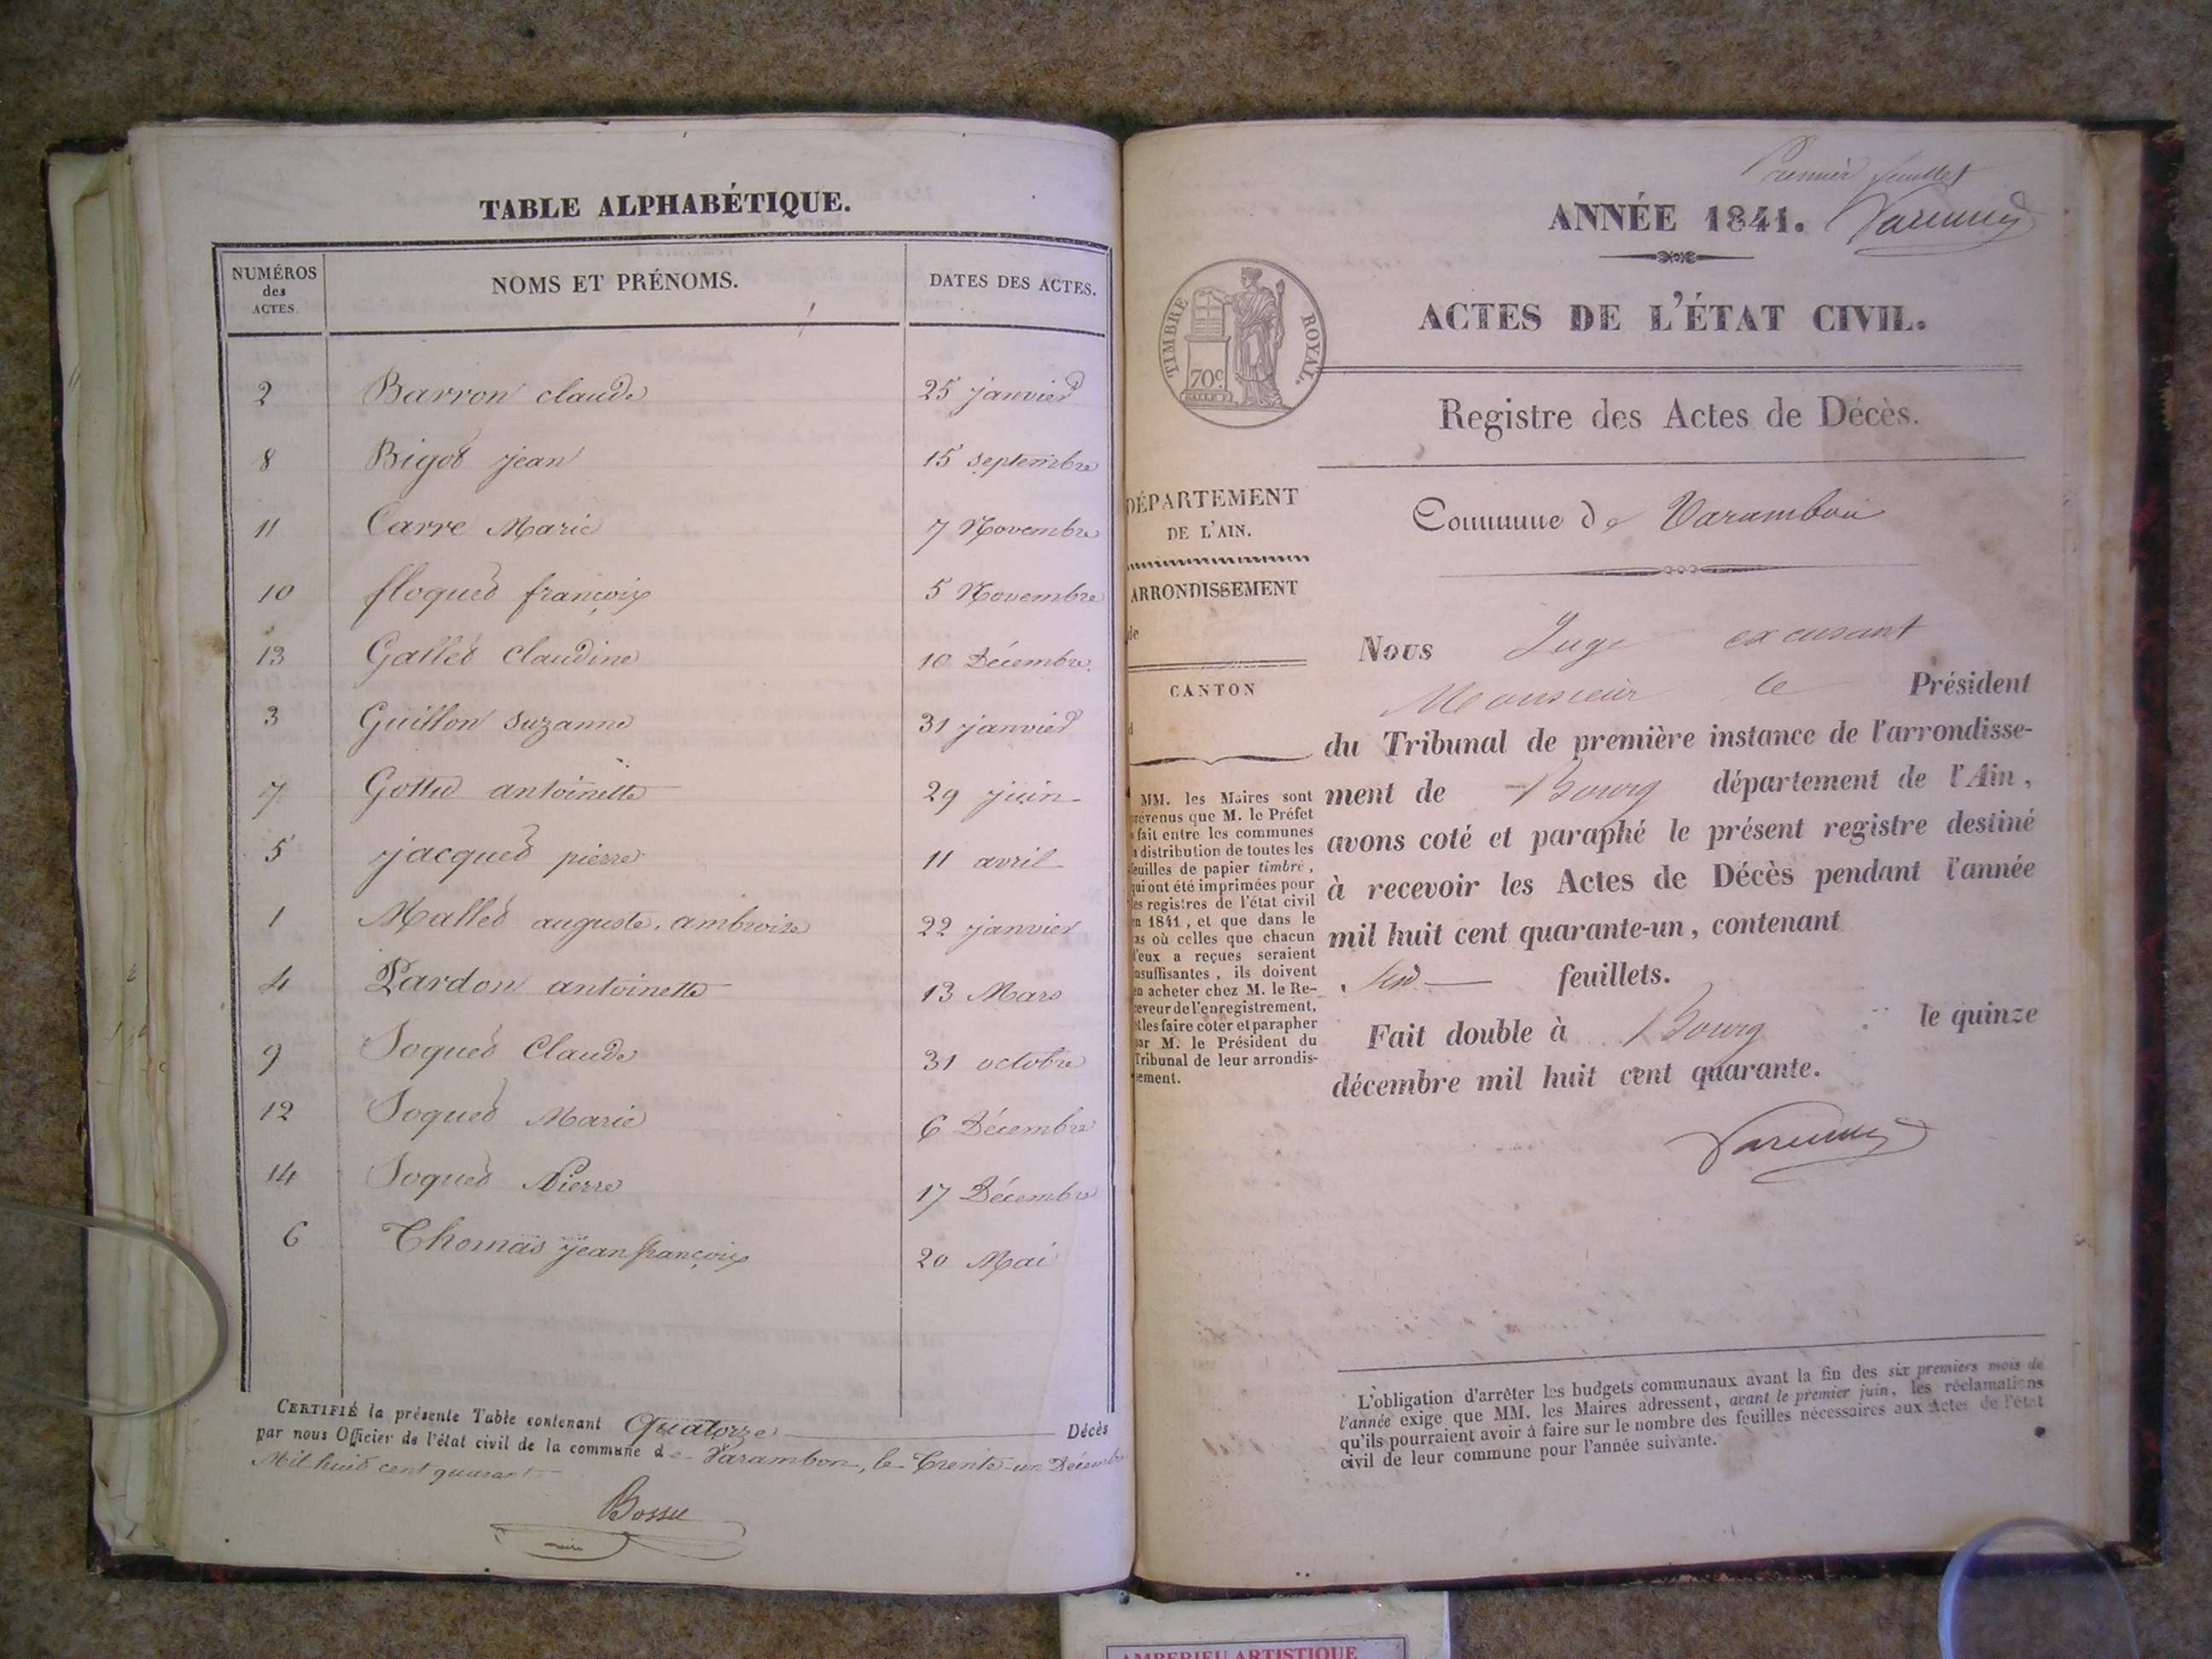 TABLE ALPHABÉTIQUE.
NUMÉROS des ACTES. NOMS ET PRÉNOMS. DATES DES ACTES.
2 Barron claude 25 janvier
8 Bigot jean 15 septembre
11 Carre Marie 7 Novembre
10 floquet françoix 5 Novembre
13 Gallet Claudine 10 Décembre.
3 Guillon suzanne 31 janvier
7 Gottu antoinette 29 juin
5 jacquet pierre 11 avril
1 Mallet auguste, ambroise 22 janvier
4 Pardon antoinette 13 Mars
9 Soquet Claude 31 octobre
12 Soquet Marie 6 Décembre
14 Soquet Pierre 17 Décembre
6 Thomas jean françoix 20 Mai
CERTIFIÉ la présente Table contenant Quatorze Décès
par nous Officier de l'état civil de la commune de Varambon, le Trente-un Décembre
Mil huit cent quarante
Bossu
maire
Premier feuillet
ANNÉE 1841.
ACTES DE L'ÉTAT CIVIL.
TIMBRE ROYAL.
70c
Registre des Actes de Décès.
DÉPARTEMENT
DE L'AIN.
ARRONDISSEMENT
de
CANTON
d
MM. les Maires sont
prévenus que M. le Préfet
a fait entre les communes
la distribution de toutes les
feuilles de papier timbré,
qui ont été imprimées pour
les registres de l'état civil
en 1841, et que dans le
cas où celles que chacun
d'eux a reçues seraient
insuffisantes, ils doivent
en acheter chez M. le Re-
ceveur de l'enregistrement,
et les faire coter et parapher
par M. le Président du
Tribunal de leur arrondis-
sement.
Commune de Varambon
Nous Juge excusant
Monsieur le Président
du Tribunal de première instance de l'arrondisse-
ment de Bourg département de l'Ain,
avons coté et paraphé le présent registre destiné
à recevoir les Actes de Décès pendant l'année
mil huit cent quarante-un, contenant
feuillets.
Fait double à Bourg le quinze
décembre mil huit cent quarante.
L'obligation d'arrêter les budgets communaux avant la fin des six premiers mois de
l'année exige que MM. les Maires adressent, avant le premier juin, les réclamations
qu'ils pourraient avoir à faire sur le nombre des feuilles nécessaires aux Actes de l'état
civil de leur commune pour l'année suivante.
AMBERIEU ARTISTIQUE